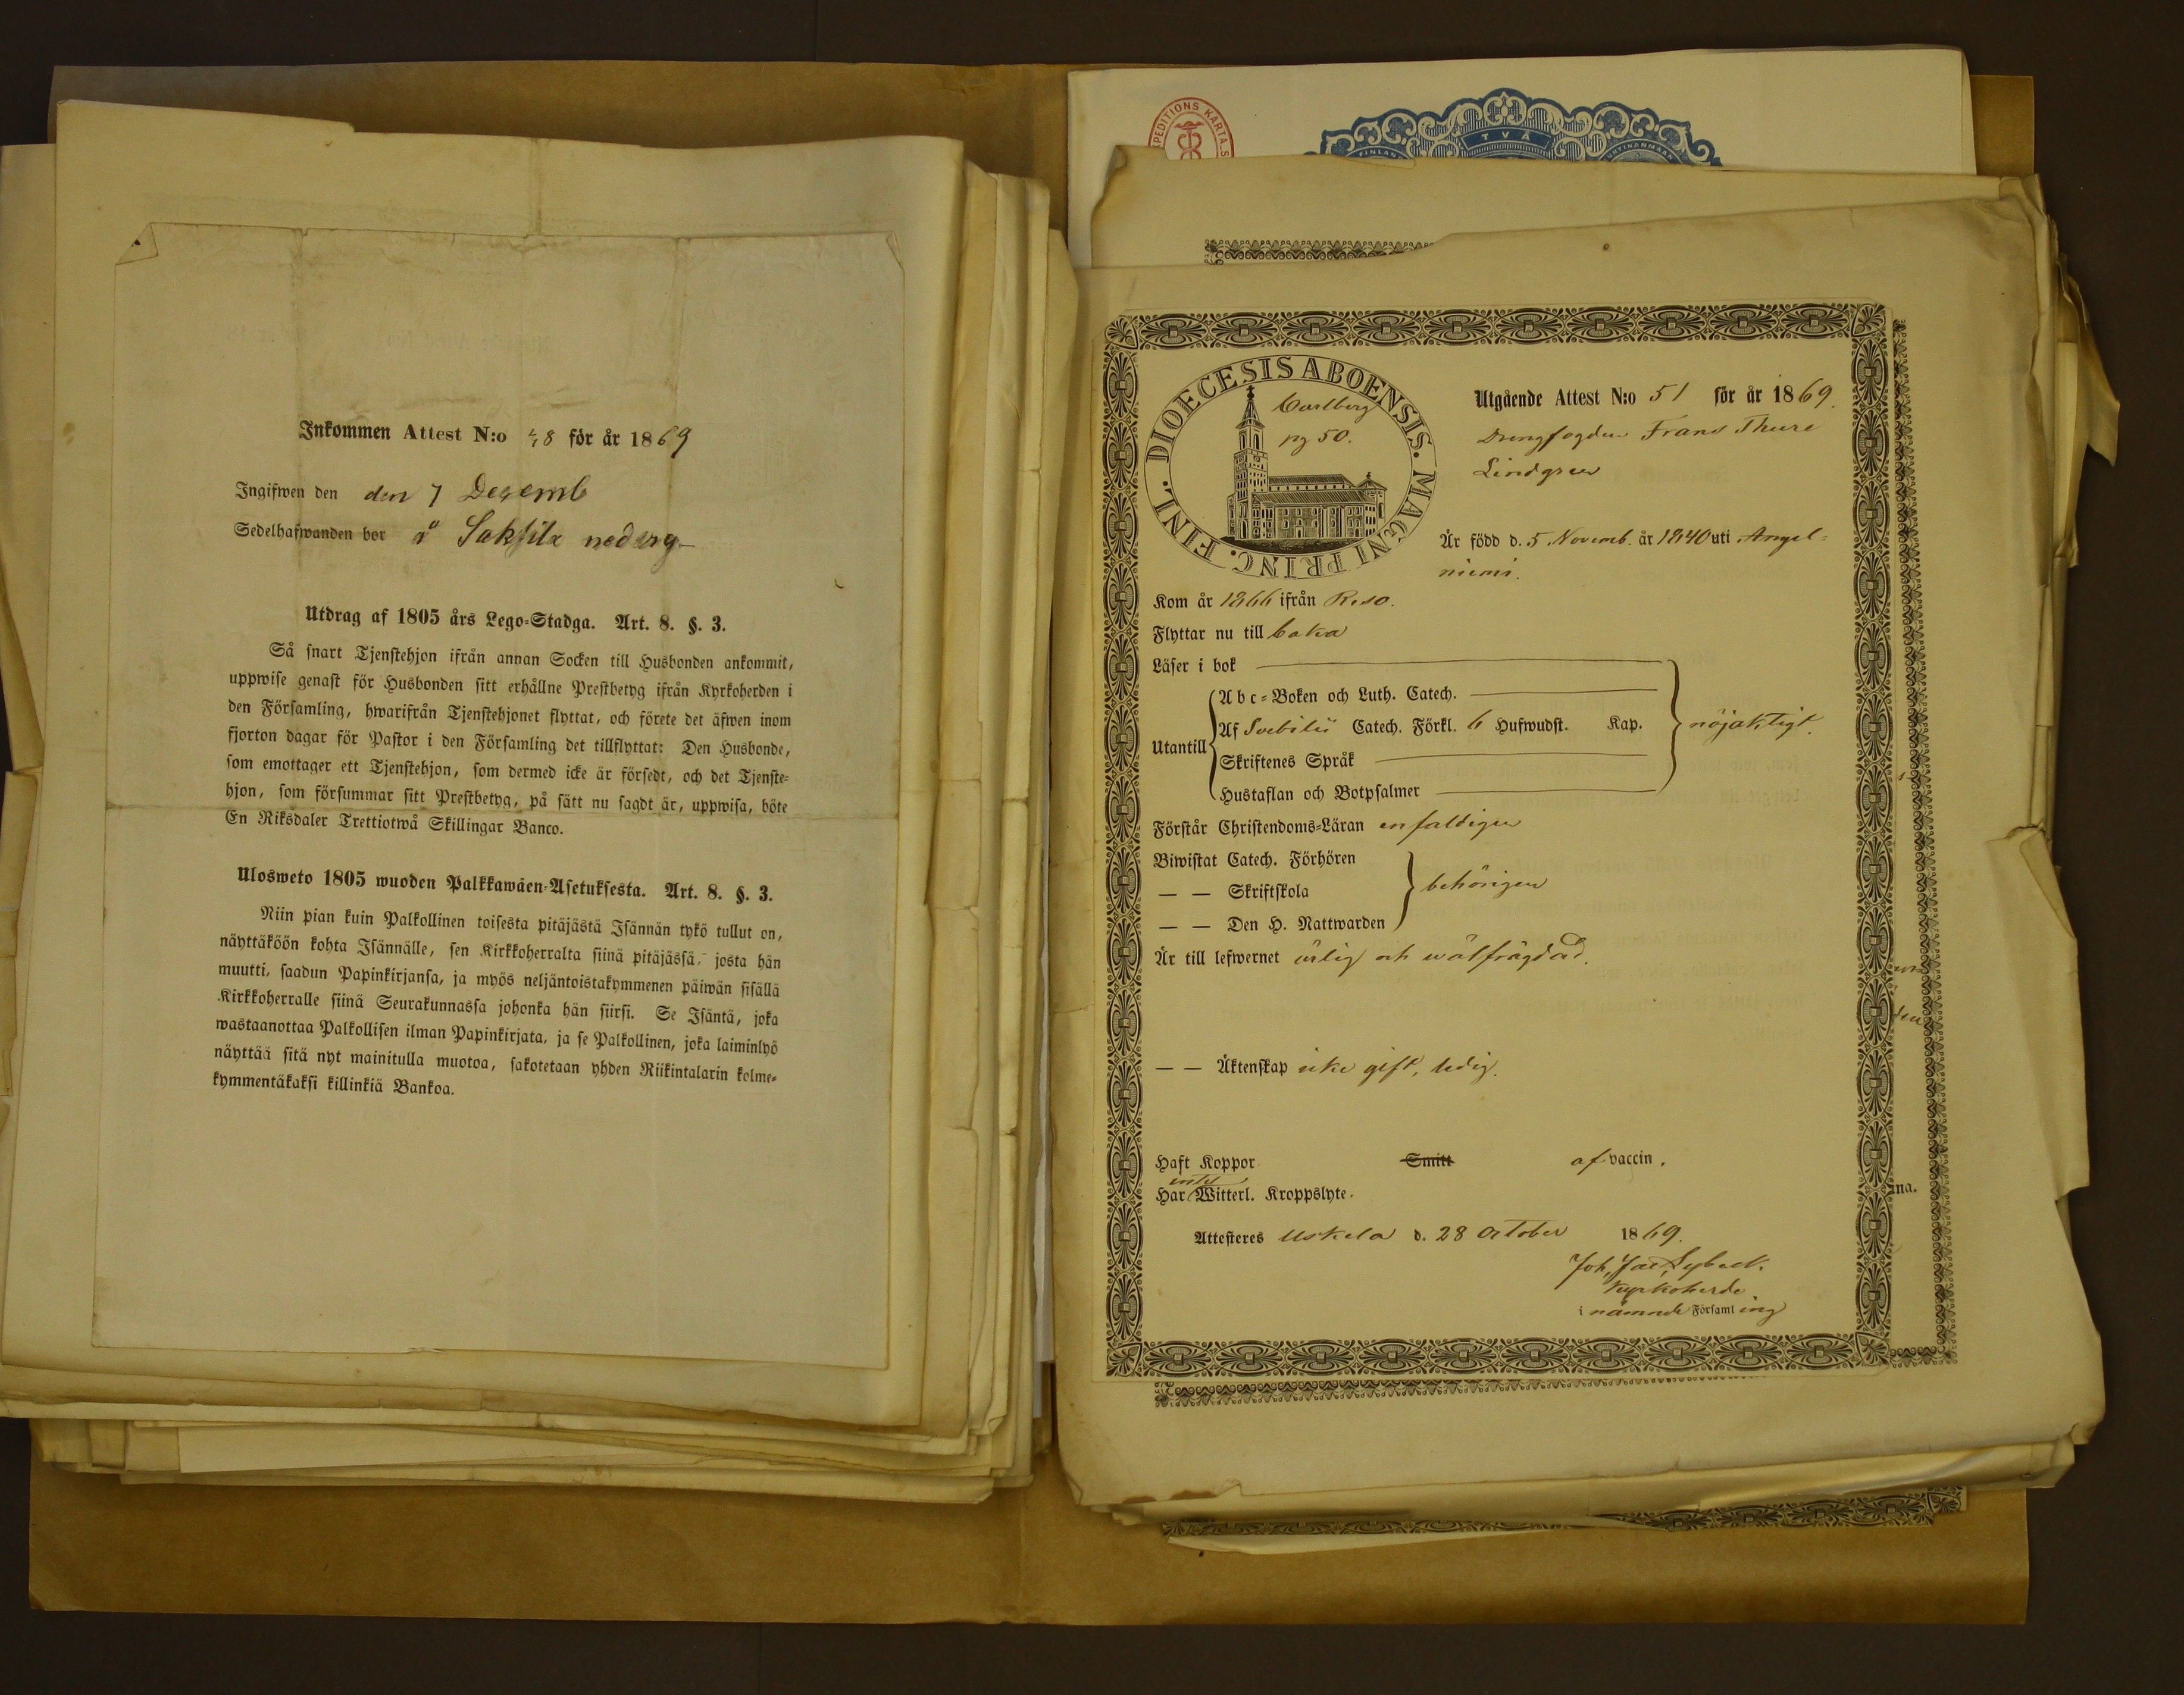 Inkommen Attest N:o 48 för år 1869
Ingifwen den den 7 Decemb
Sedelhafwanden bor å Saksila
Utdrag af 1805 års Lego-Stadga. Art. 8. §. 3.
Så snart Tjenstehjon ifrån annan Socken till Husbonden ankommit,
uppwise genast för Husbonden sitt erhållne Prestbetyg ifrån Kyrkoherden i
den Församling, hwarifrån Tjenstehjonet flyttat, och förete det äfwen inom
fjorton dagar för Pastor i den Församling det tillflyttat: Den Husbonde,
som emottager ett Tjenstehjon, som dermed icke är försedt, och det Tjenste-
hjon, som försummar sitt Prestbetyg, på sätt nu sagdt är, uppwisa, böte
En Riksdaler Trettiotwå Skillingar Banco.
Ulosweto 1805 wuoden Palkkawäen-Asetuksesta. Art. 8. §. 3.
Niin pian kuin Palkollinen toisesta pitäjästä Isännän tykö tullut on,
näyttäköön kohta Isännälle, sen Kirkkoherralta siinä pitäjässä, josta hän
muutti, saadun Papinkirjansa, ja myös neljäntoistakymmenen päiwän sisällä
Kirkkoherralle siinä Seurakunnassa johonka hän siirsi. Se Isäntä, joka
wastaanottaa Palkollisen ilman Papinkirjata, ja se Palkollinen, joka laiminlyö
näyttää sitä nyt mainitulla muotoa, sakotetaan yhden Riikintalarin kolme-
kymmentäkaksi killinkiä Bankoa.
PEDITIONS KARTA S
TVÅ
FINLAN
DIOECESIS ABOENSIS. MAGNI PRINC. FINL.
Carlberg
pg 50.
Utgående Attest N:o 51 för år 1869.
Drengfogden Frans Thure
Lindgren
Är född d. 5 Novemb. år 1840 uti Angel-
niemi.
Kom år 1866 ifrån Reso.
Flyttar nu till
Läser i bok
Abc-Boken och Luth. Catech.
Utantill
Af Svebilii Catech. Förkl. 6 Hufwudst. Kap.
nöjaktigt.
Skriftenes Språk
Hustaflan och Botpsalmer
Förstår Christendoms-Läran enfaldigen
Biwistat Catech. Förhören
— — Skriftskola
behörigen
— — Den H. Nattwarden
Är till lefwernet ärlig och wälfrägdad.
— — Äktenskap icke gift, ledig.
Haft Koppor Smitt af vaccin.
intet
Har Witterl. Kroppslyte.
Attesteres Uskela d. 28 October 1869.
Joh. Jac. Sybeck.
Kyrkoherde
i nämnde Församling
den
na.